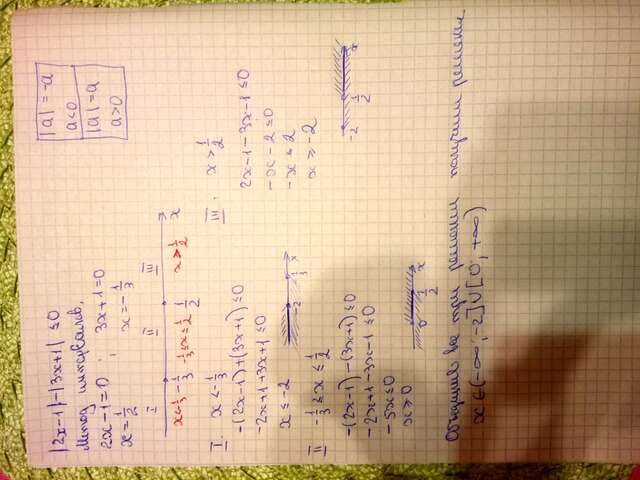 |2x-1|-|3x+1| ≤0
Метод интервалов.
2x-1=0 ; 3x+1=0
x=1/2 x=-1/3
|a|=-a
a<0
|a|=a
a>0
I II III
x<-1/3 -1/3 -1/3≤x≤1/2 1/2 x>1/2 x
I. x<-1/3
-(2x-1)+(3x+1)≤0
-2x+1+3x+1≤0
x≤-2
-2 -1/3 x
II -1/3≤x≤1/2
-(2x-1)-(3x+1)≤0
-2x+1-3x-1≤0
-5x≤0
x≥0
0 1/2 x
III. x>1/2
2x-1-3x-1≤0
-x-2≤0
-x≤2
x≥-2
-2 1/2 x
Объединив все три решения получим решение
x∈(-∞;-2]∪[0;+∞)